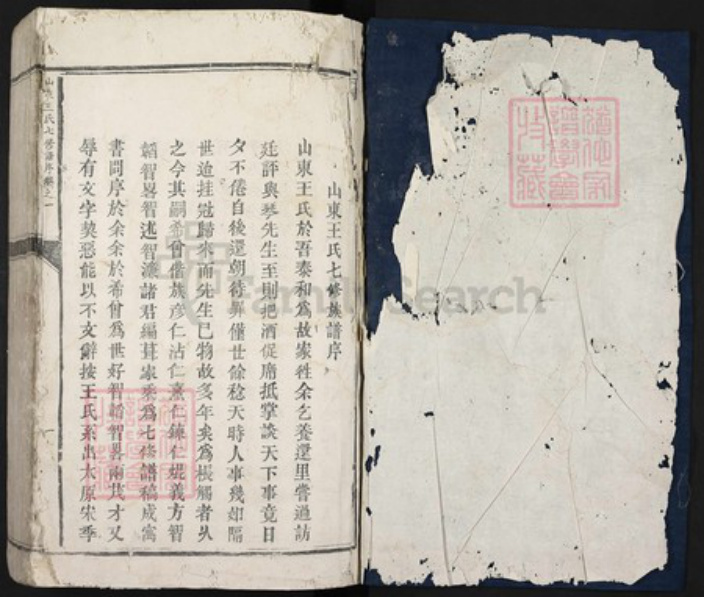 山東王氏七修族譜序
山東王氏於吾泰和為故家往余乞養還里嘗過訪
廷評與琴先生至則把酒促席抵掌談天下事竟日
夕不倦自後還朝待罪僅世餘稔天時人事幾如隔
世迨挂冠歸來而先生已物故多年矣為棖觸者久
之今其嗣希曾偕族彥仁沾仁熏仁鍊仁焜義方智
韜智畧智述智濂諸君編葺家乘為七修譜稿成寓
書問序於余余於希曾為世好智韜智畧兩茂才又
辱有文字契惡能以不文辭按王氏系出太原宋季
山東王氏七修譜序 卷之一
FamilySearch